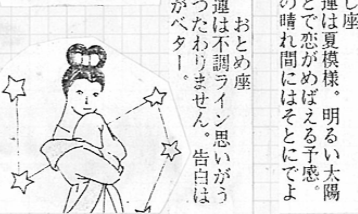 し座
運は夏模様。明るい太陽
とで恋がめばえる予感。
の晴れ間にはそとにでよ
おとめ座
運は不調ライン思いがう
つたわりません。告白は
がベター。